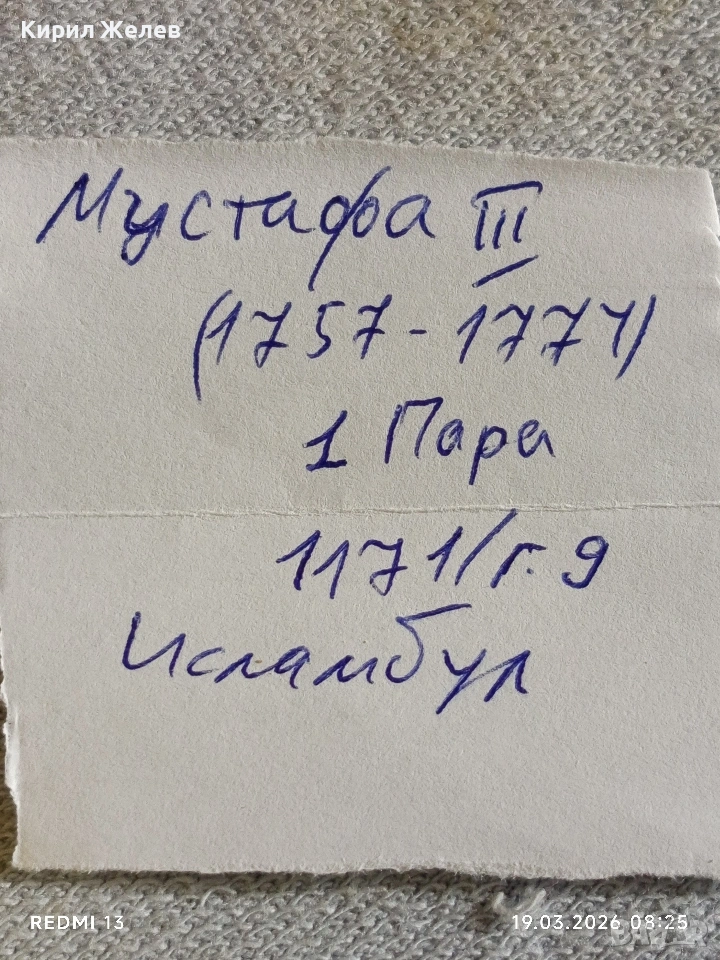 Кирил Желев
Мустафа III
(1757-1774)
1 Пара
1171/г. 9
Исламбул
REDMI 13
19.03.2026 08:25